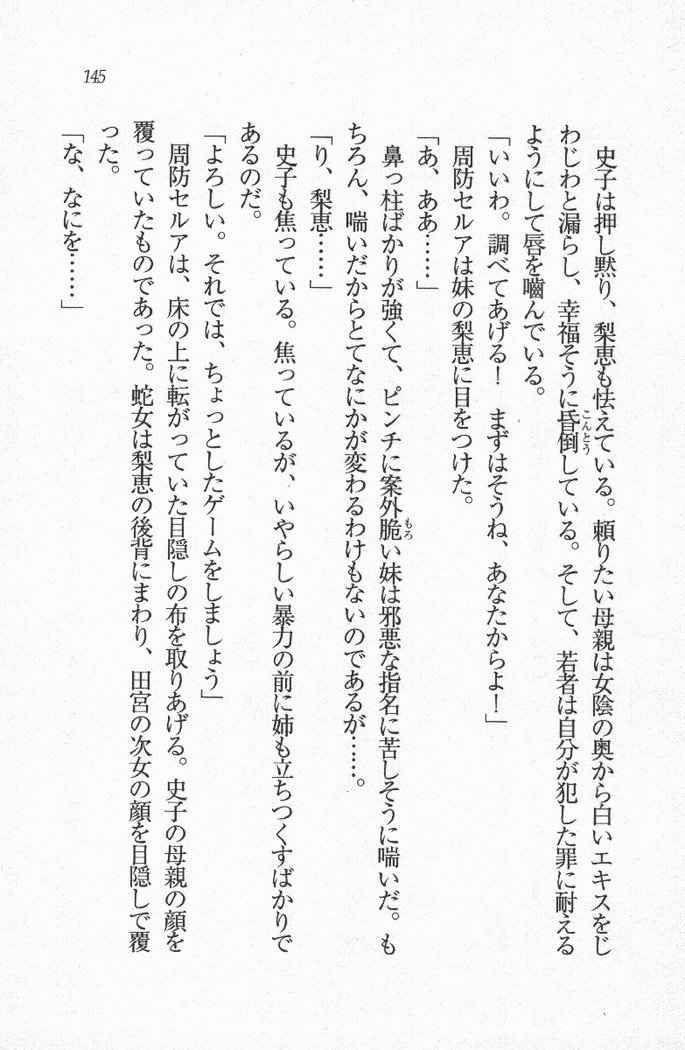 145
史子は押し黙り、梨恵も怯えている。頼りたい母親は女陰の奥から白いエキスをじ
わじわと漏らし、幸福そうに昏倒している。そして、若者は自分が犯した罪に耐える
ようにして唇を嚙んでいる。
「いいわ。調べてあげる！　まずはそうね、あなたからよ！」
周防セルアは妹の梨恵に目をつけた。
「あ、ああ……」
鼻っ柱ばかりが強くて、ピンチに案外脆い妹は邪悪な指名に苦しそうに喘いだ。も
ちろん、喘いだからとてなにかが変わるわけもないのであるが……。
「り、梨恵……」
史子も焦っている。焦っているが、いやらしい暴力の前に姉も立ちつくすばかりで
あるのだ。
「よろしい。それでは、ちょっとしたゲームをしましょう」
周防セルアは、床の上に転がっていた目隠しの布を取りあげる。史子の母親の顔を
覆っていたものであった。蛇女は梨恵の後背にまわり、田宮の次女の顔を目隠しで覆
った。
「な、なにを……」
こんとう
もろ